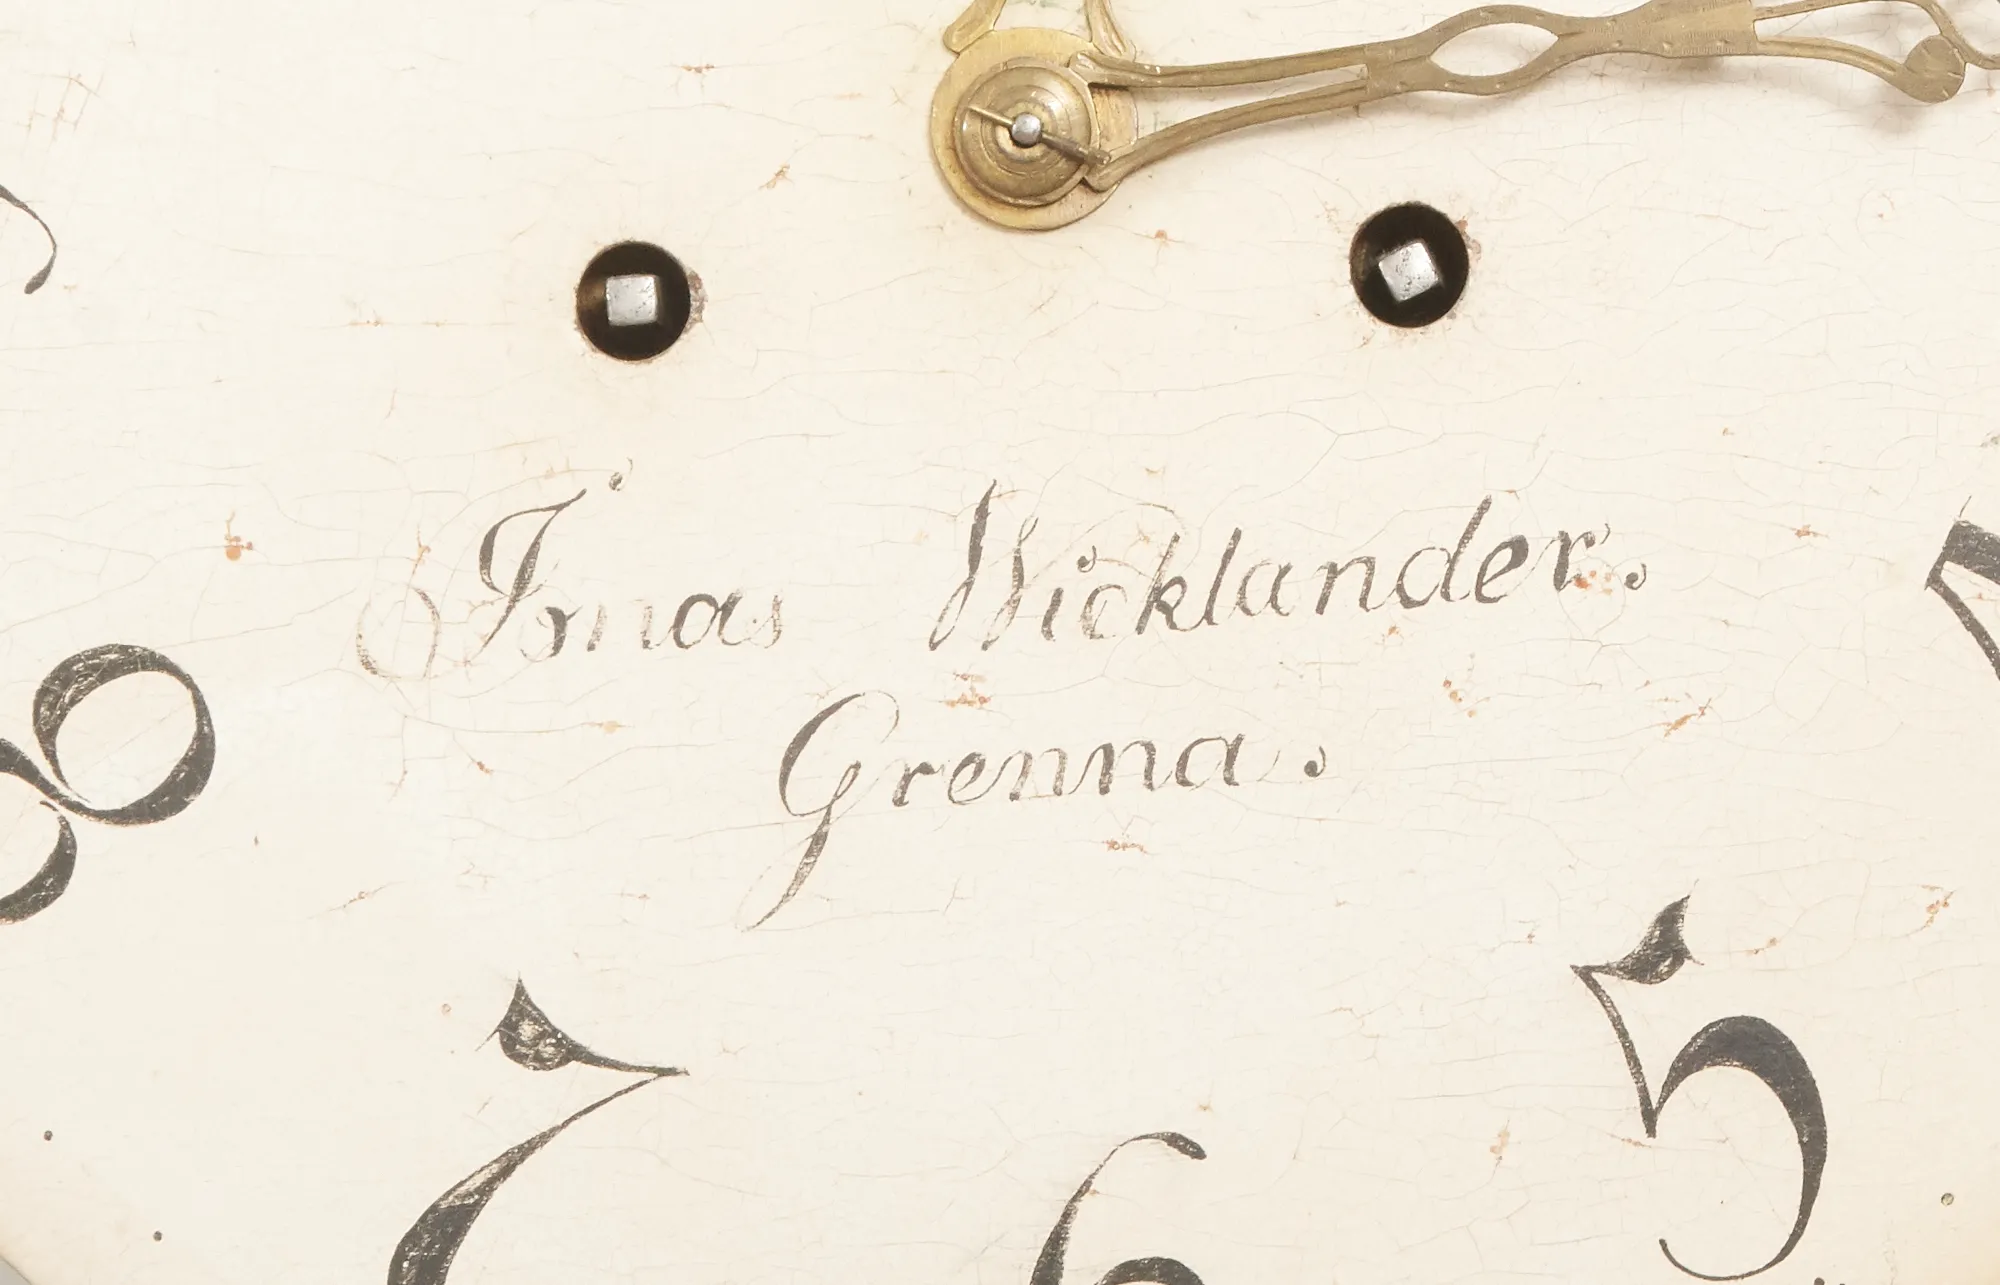 Jonas Wicklander.
Grenna.
8
7
6
5